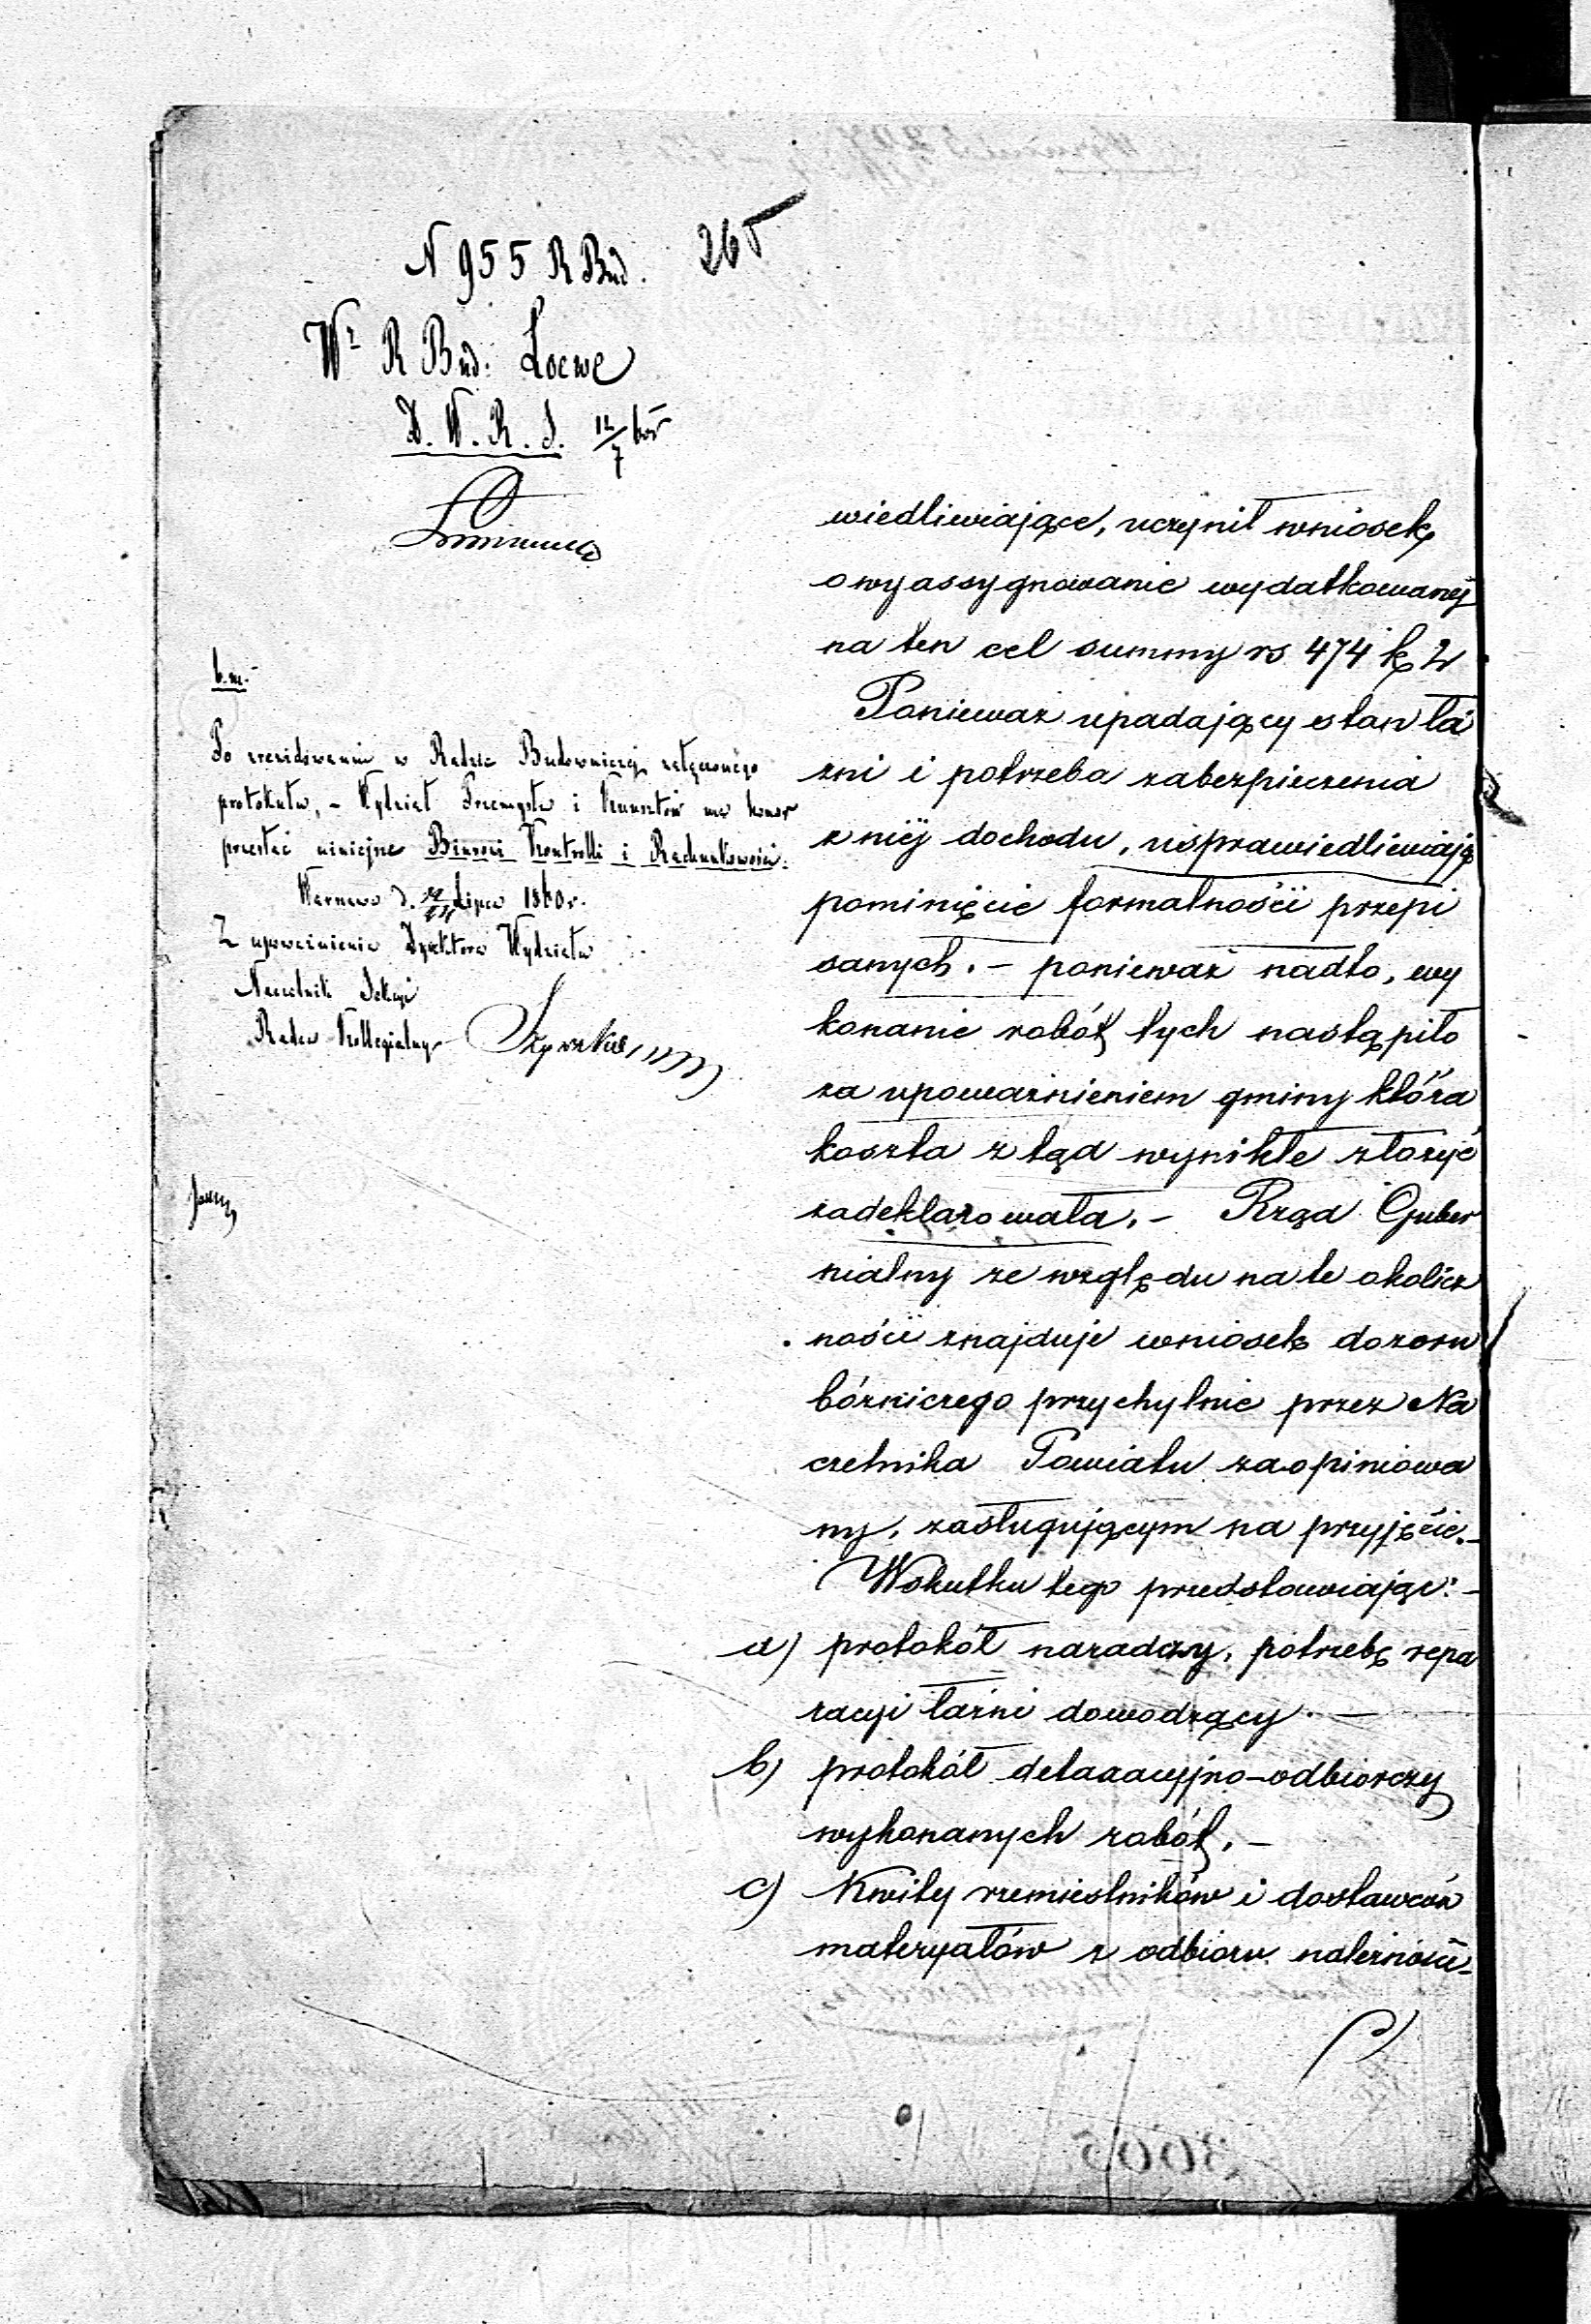 N 955 R Bud. 265
Wº R Bud: Loewe
D. W. R. S. 12/7 60r
b. m.
Po zrewidowaniu w Radzie Budowniczej załączonego
protokułu, – Wydział Przemysłu i Kunsztów ma honor
przesłać niniejsze Biurowi Kontrolli i Rachunkowości.
Warszawa d. Lipca 1860 r.
Z upoważnienia Dyrektora Wydziału
Naczelnik Sekcyi
Radca Kollegialny
wiedliwiające, uczynił wniosek
o wyassygnowanie wydatkowanej
na ten cel summy rs 474 k 2
Ponieważ upadający stan ła
zni i potrzeba zabezpieczenia
z niéj dochodu, usprawiedliwiają
pominięcie formalności przepi
sanych. – ponieważ nadto, wy
konanie robót tych nastąpiło
za upoważnieniem gminy która
koszta ztąd wynikłe złożyć
zadeklarowała. – Rząd Guber
nialny ze względu na te okolicz
ności znajduje wniosek dozoru
bóżniczego przychylnie przez Na
czelnika Powiatu zaopiniowa
ny, zasługującym na przyjęcie. –
Wskutku tego przedstawiając: –
a) protokół naradczy, potrzebę repa
racyi łaźni dowodzący. —
b) protokół detaxacyjno-odbiorczy
wykonanych robót. –
c) Kwity rzemieslników i dostawców
materyałów z odbioru należności –